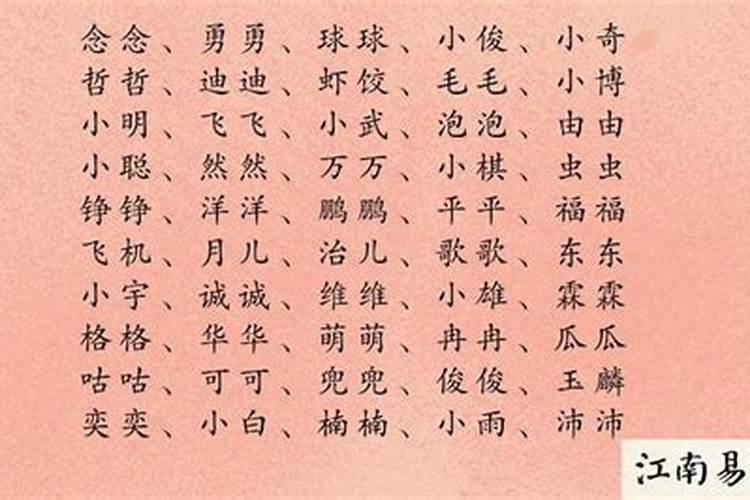 念念、勇勇、球球、小俊、小奇
哲哲、迪迪、虾饺、毛毛、小博
小明、飞飞、小武、泡泡、由由
小聪、然然、万万、小棋、虫虫
铮铮、洋洋、鹏鹏、平平、福福
飞机、月儿、治儿、歌歌、东东
小宇、诚诚、维维、小雄、霖霖
格格、华华、萌萌、冉冉、瓜瓜
咕咕、可可、兜兜、俊俊、玉麟
奕奕、小白、楠楠、小雨、沛沛
江南易